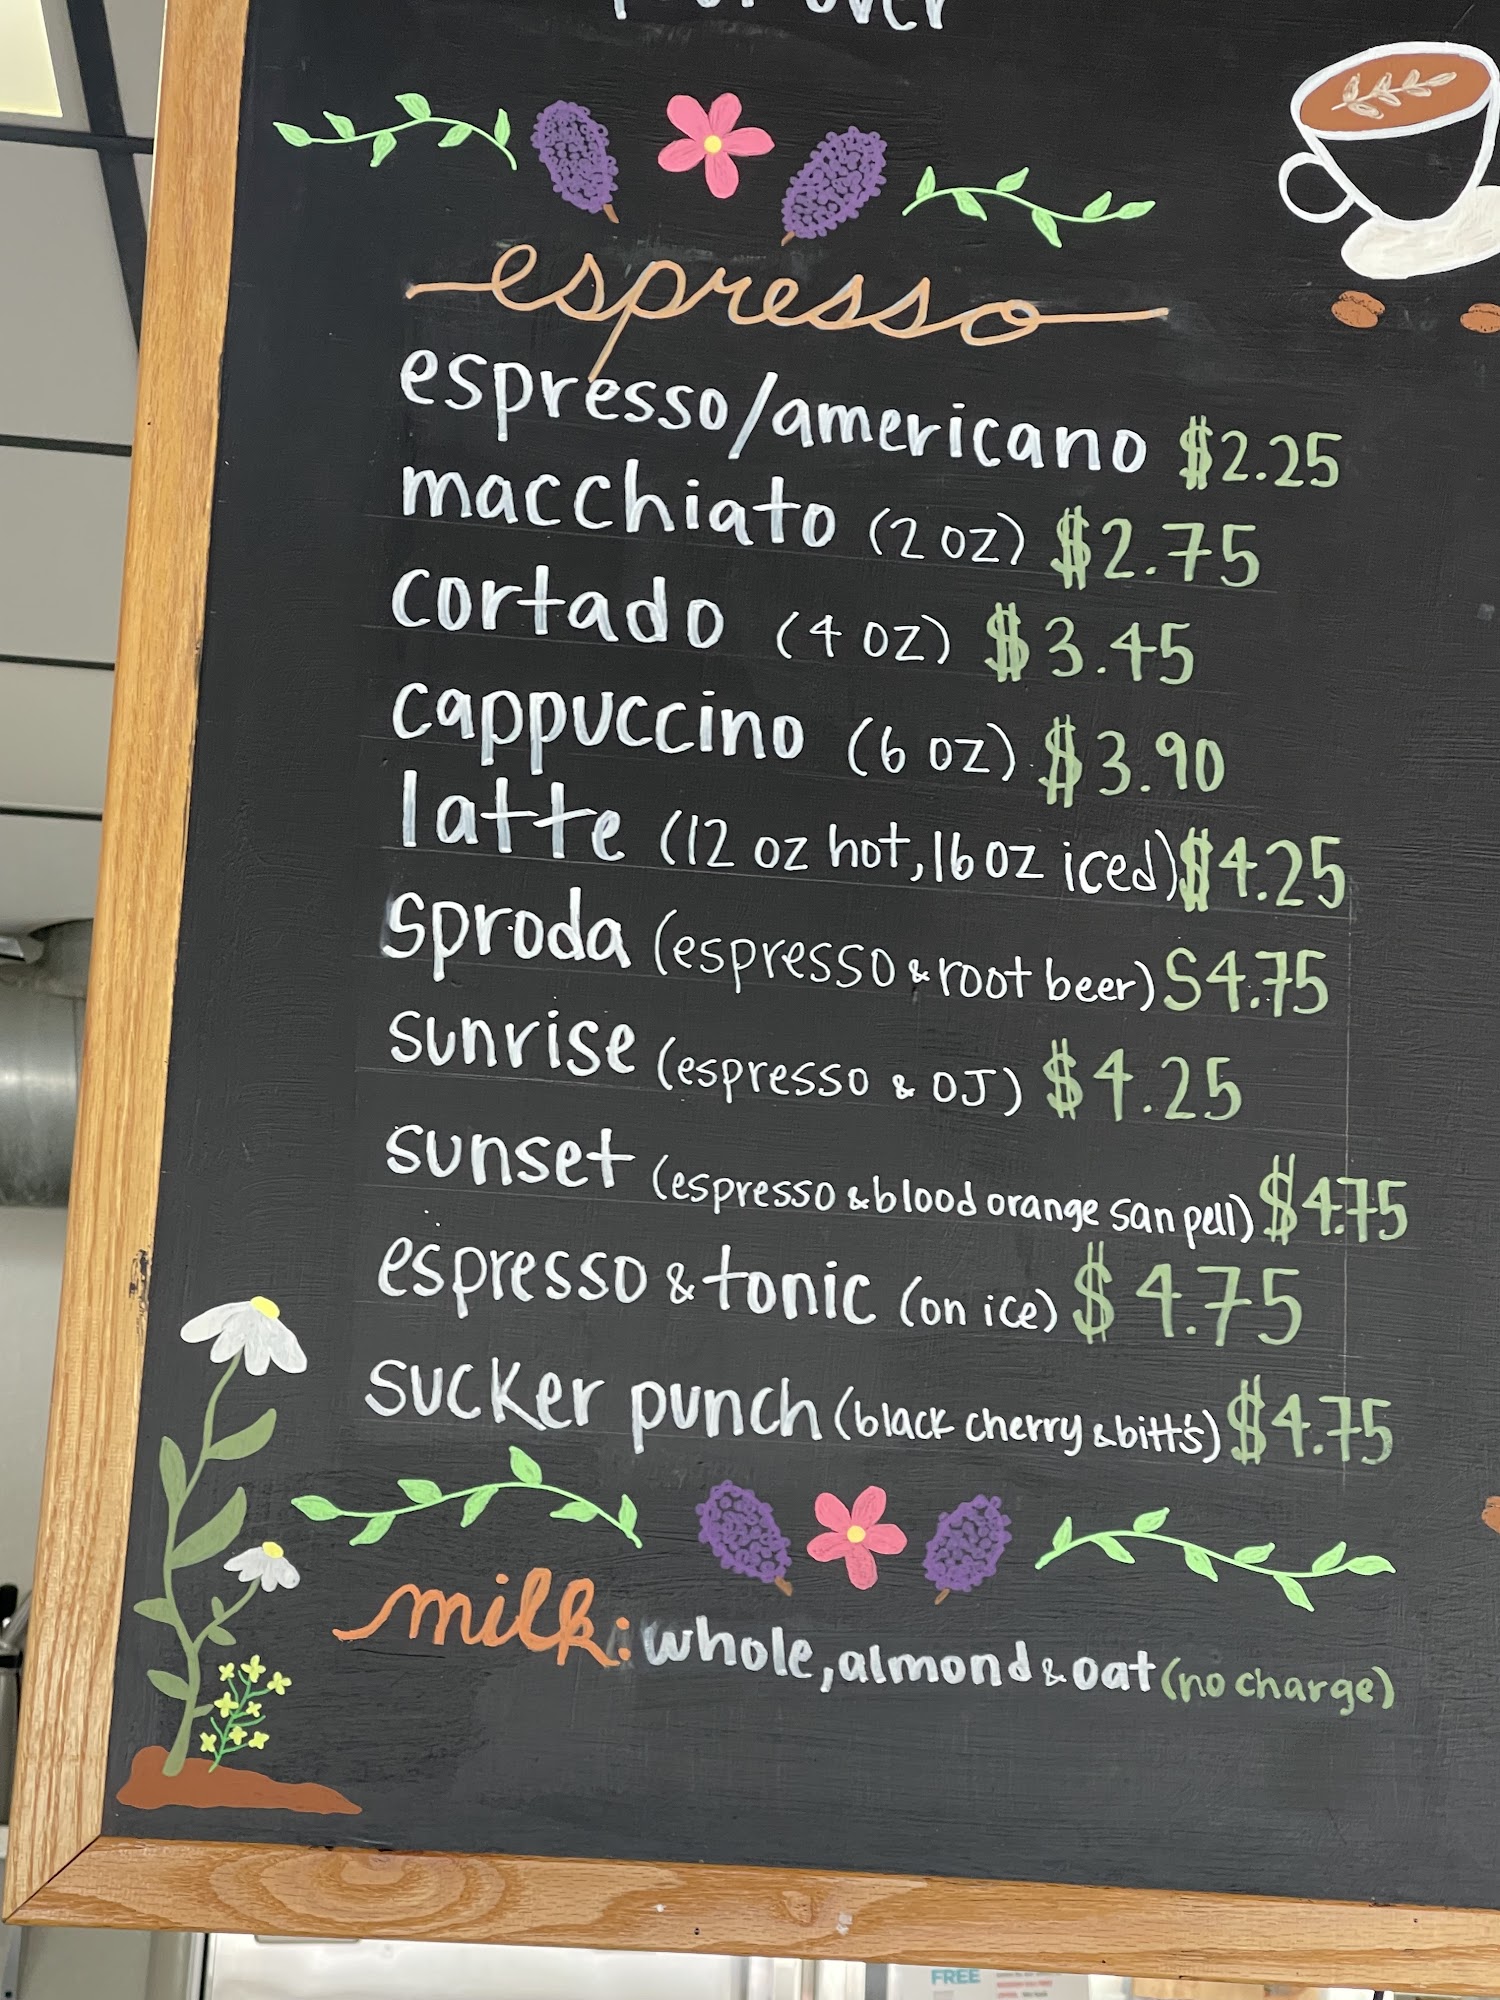 pour over
espresso
espresso/americano $2.25
macchiato (2 oz) $2.75
cortado (4 oz) $3.45
cappuccino (6 oz) $3.90
latte (12 oz hot, 16 oz iced) $4.25
sproda (espresso & root beer) S4.75
sunrise (espresso & OJ) $4.25
sunset (espresso & blood orange san pell) $4.75
espresso & tonic (on ice) $4.75
sucker punch (black cherry & bitt's) $4.75
milk: whole, almond & oat (no charge)
FREE